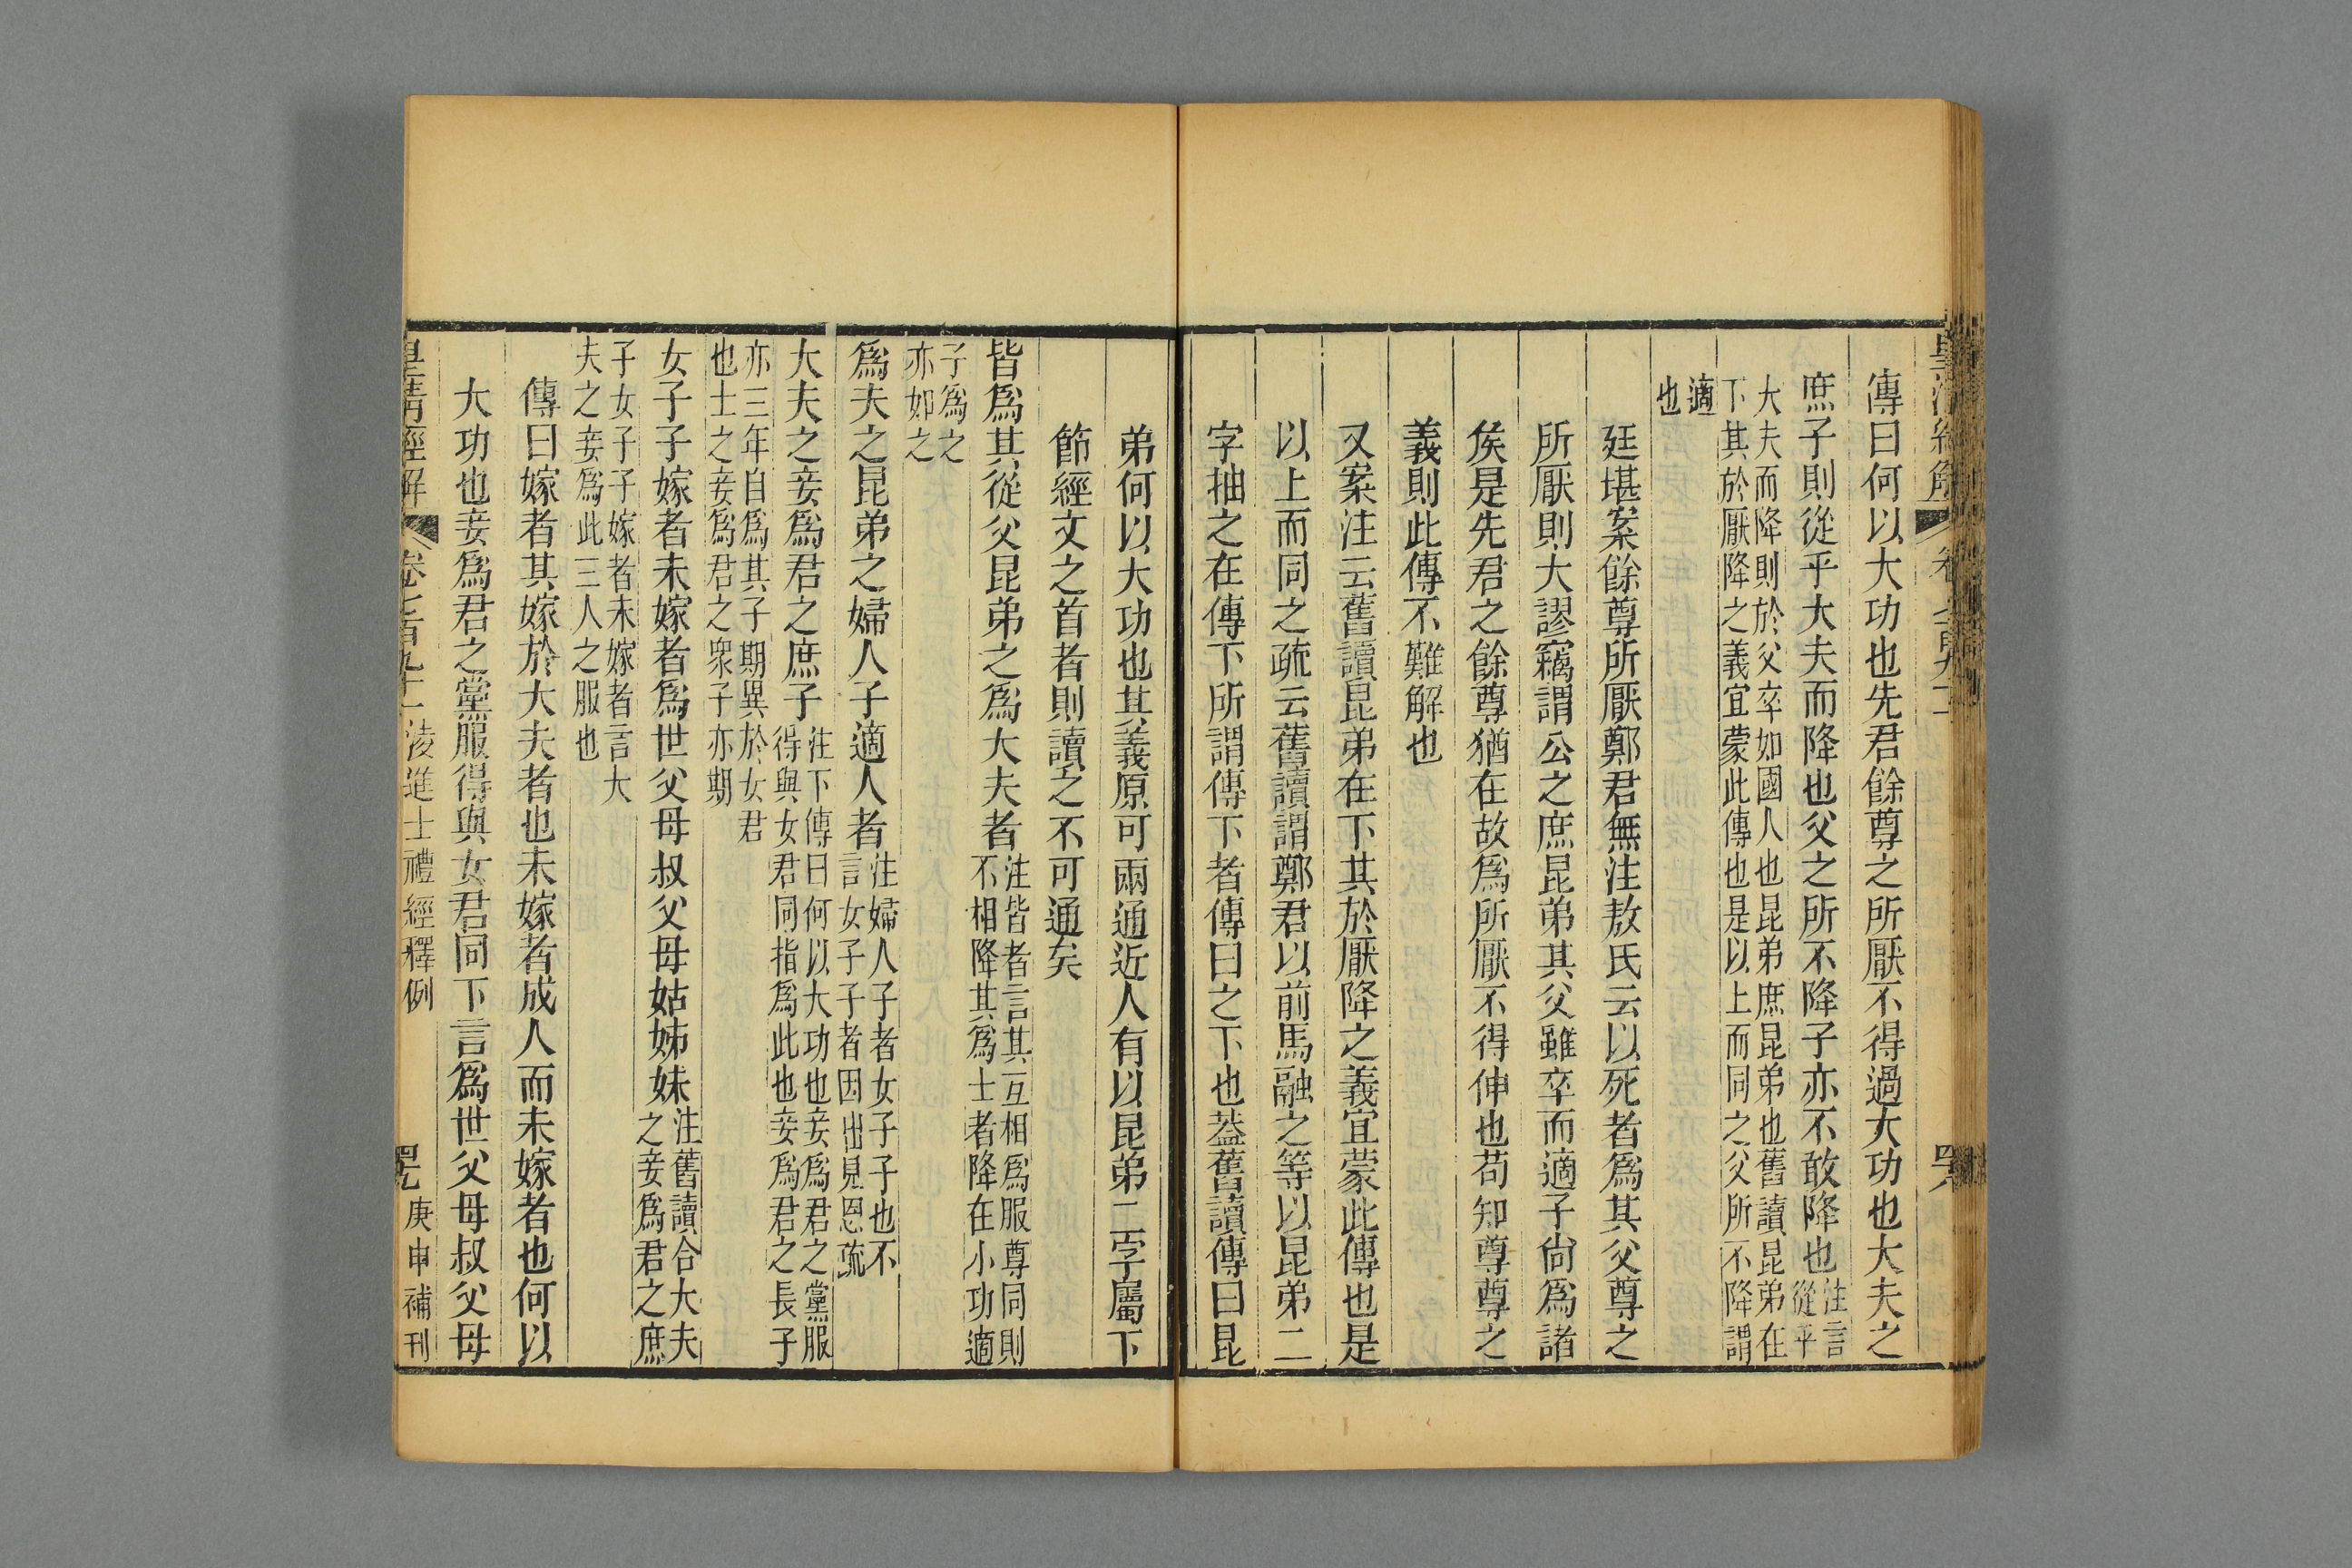 傳曰何以大功也先君餘尊之所厭不得過大功也大夫之
庶子則從乎大夫而降也父之所不降子亦不敢降也注言從乎
大夫而降則於父卒如國人也昆弟庶昆弟也舊讀昆弟在
下其於厭降之義宜蒙此傳也是以上而同之父所不降謂
適
也
廷堪案餘尊所厭鄭君無注敖氏云以死者爲其父尊之
所厭則大謬竊謂公之庶昆弟其父雖卒而適子尙爲諸
侯是先君之餘尊猶在故爲所厭不得伸也苟知尊尊之
義則此傳不難解也
又案注云舊讀昆弟在下其於厭降之義宜蒙此傳也是
以上而同之疏云舊讀謂鄭君以前馬融之等以昆弟二
字抽之在傳下所謂傳下者傳曰之下也葢舊讀傳曰昆
弟何以大功也其義原可兩通近人有以昆弟二字屬下
節經文之首者則讀之不可通矣
皆爲其從父昆弟之爲大夫者注皆者言其互相爲服尊同則不相降其爲士者降在小功適
子爲之
亦如之
爲夫之昆弟之婦人子適人者注婦人子者女子子也不言女子子者因出見恩疏
大夫之妾爲君之庶子注下傳曰何以大功也妾爲君之黨服得與女君同指爲此也妾爲君之長子
亦三年自爲其子期異於女君
也士之妾爲君之衆子亦期
女子子嫁者未嫁者爲世父母叔父母姑姊妹注舊讀合大夫之妾爲君之庶
子女子子嫁者未嫁者言大
夫之妾爲此三人之服也
傳曰嫁者其嫁於大夫者也未嫁者成人而未嫁者也何以
大功也妾爲君之黨服得與女君同下言爲世父母叔父母
皇淸經解 卷七百九十一 淩進士禮經釋例 庚申補刊